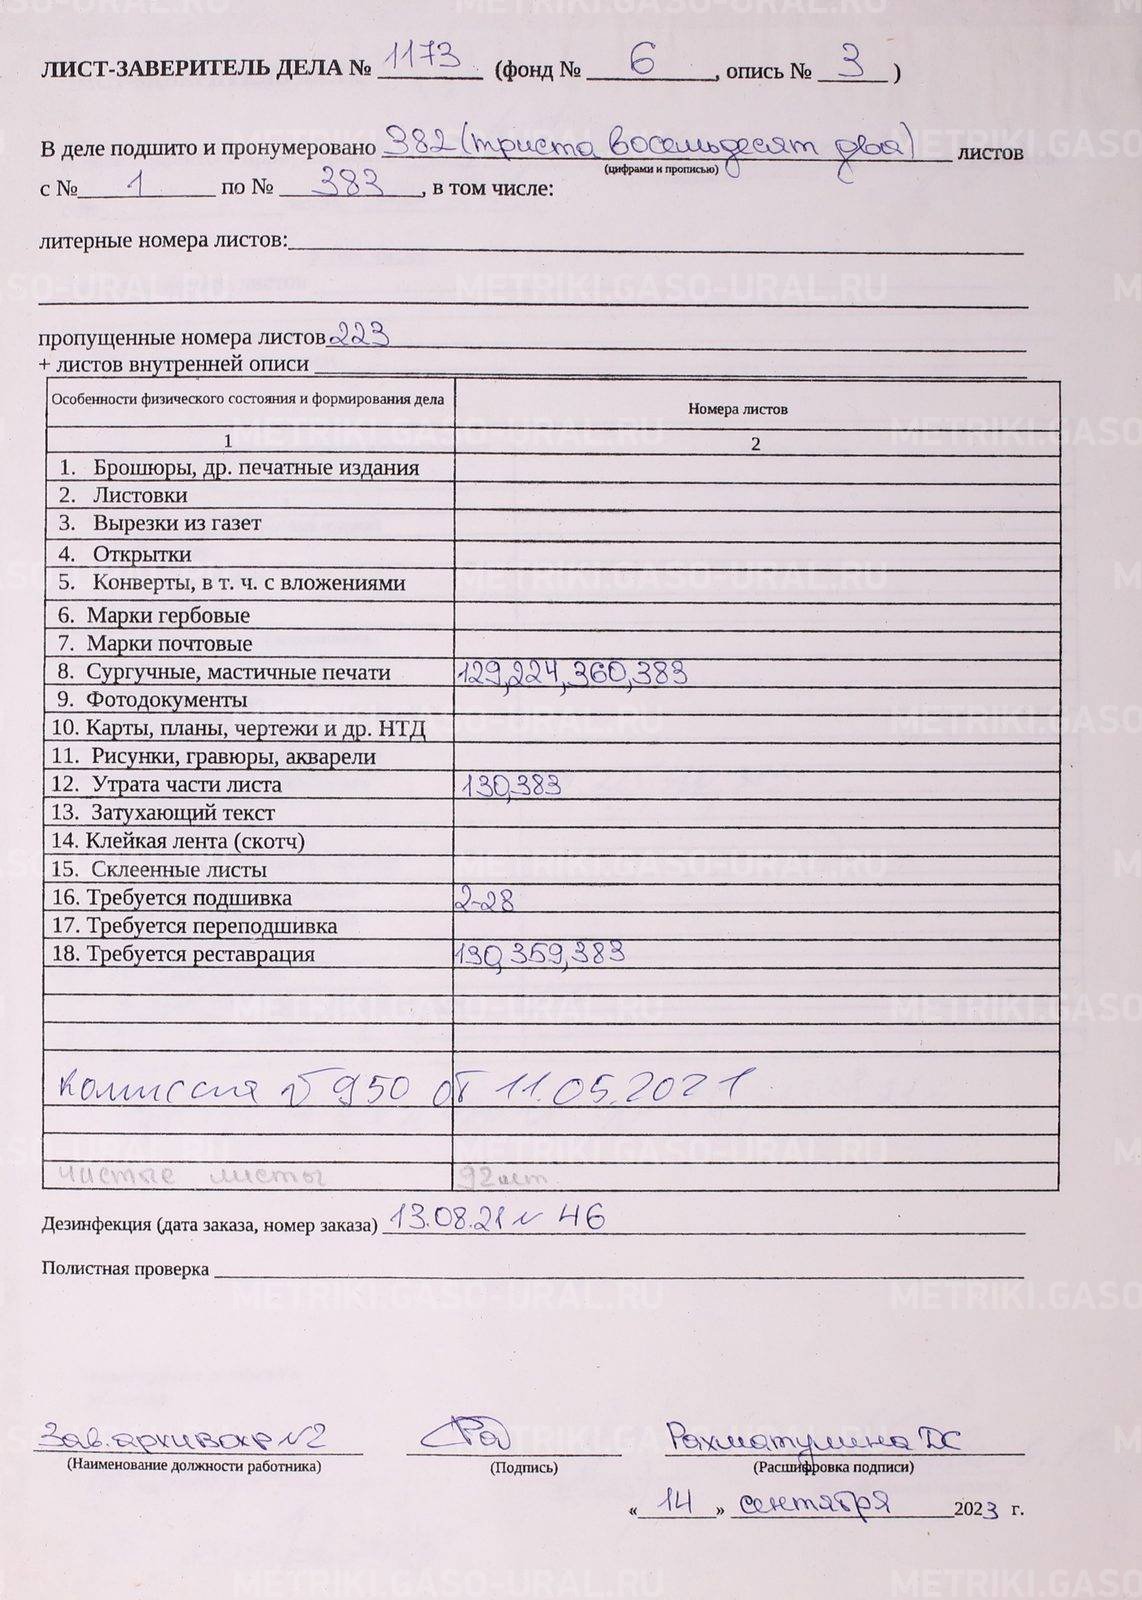 ЛИСТ-ЗАВЕРИТЕЛЬ ДЕЛА № 1173 (фонд № 6, опись № 3)
В деле подшито и пронумеровано 382 (триста восемьдесят два) листов
(цифрами и прописью)
с № 1 по № 383, в том числе:
литерные номера листов:
пропущенные номера листов 223
+ листов внутренней описи
Особенности физического состояния и формирования дела Номера листов
1 2
1. Брошюры, др. печатные издания
2. Листовки
3. Вырезки из газет
4. Открытки
5. Конверты, в т. ч. с вложениями
6. Марки гербовые
7. Марки почтовые
8. Сургучные, мастичные печати 129,224,360,383
9. Фотодокументы
10. Карты, планы, чертежи и др. НТД
11. Рисунки, гравюры, акварели
12. Утрата части листа 130,383
13. Затухающий текст
14. Клейкая лента (скотч)
15. Склеенные листы
16. Требуется подшивка 2-28
17. Требуется переподшивка
18. Требуется реставрация 130,359,383
Комиссия № 950 от 11.05.2021
чистые листы 92 лст.
Дезинфекция (дата заказа, номер заказа) 13.08.21 № 46
Полистная проверка
Зав. архивохр №2 Рахматулина ДС
(Наименование должности работника) (Подпись) (Расшифровка подписи)
« 14 » сентября 2023 г.
METRIKI.GASO-URAL.RU